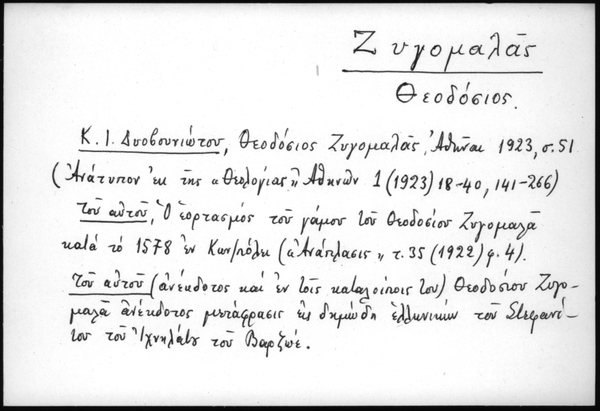 Ζυγομαλᾶς
Θεοδόσιος.
Κ. Ι. Δυοβουνιώτου, Θεοδόσιος Ζυγομαλᾶς, Ἀθῆναι 1923, σ. 51
(Ἀνάτυπον ἐκ τῆς «Θεολογίας» Ἀθηνῶν 1 (1923) 18-40, 141-266)
Τοῦ αὐτοῦ, Ὁ ἑορτασμὸς τοῦ γάμου τοῦ Θεοδοσίου Ζυγομαλᾶ
κατὰ τὸ 1578 ἐν Κων/πόλει («Ἀνάπλασις» τ. 35 (1922) φ. 4).
Τοῦ αὐτοῦ (ἀνέκδοτος καὶ ἐν τοῖς καταλοίποις του) Θεοδοσίου Ζυγο-
μαλᾶ ἀνέκδοτος μετάφρασις εἰς δημώδη ἑλληνικὴν τοῦ Στεφανί-
του τοῦ Ἰχνηλάτου τοῦ Βαρζωέ.